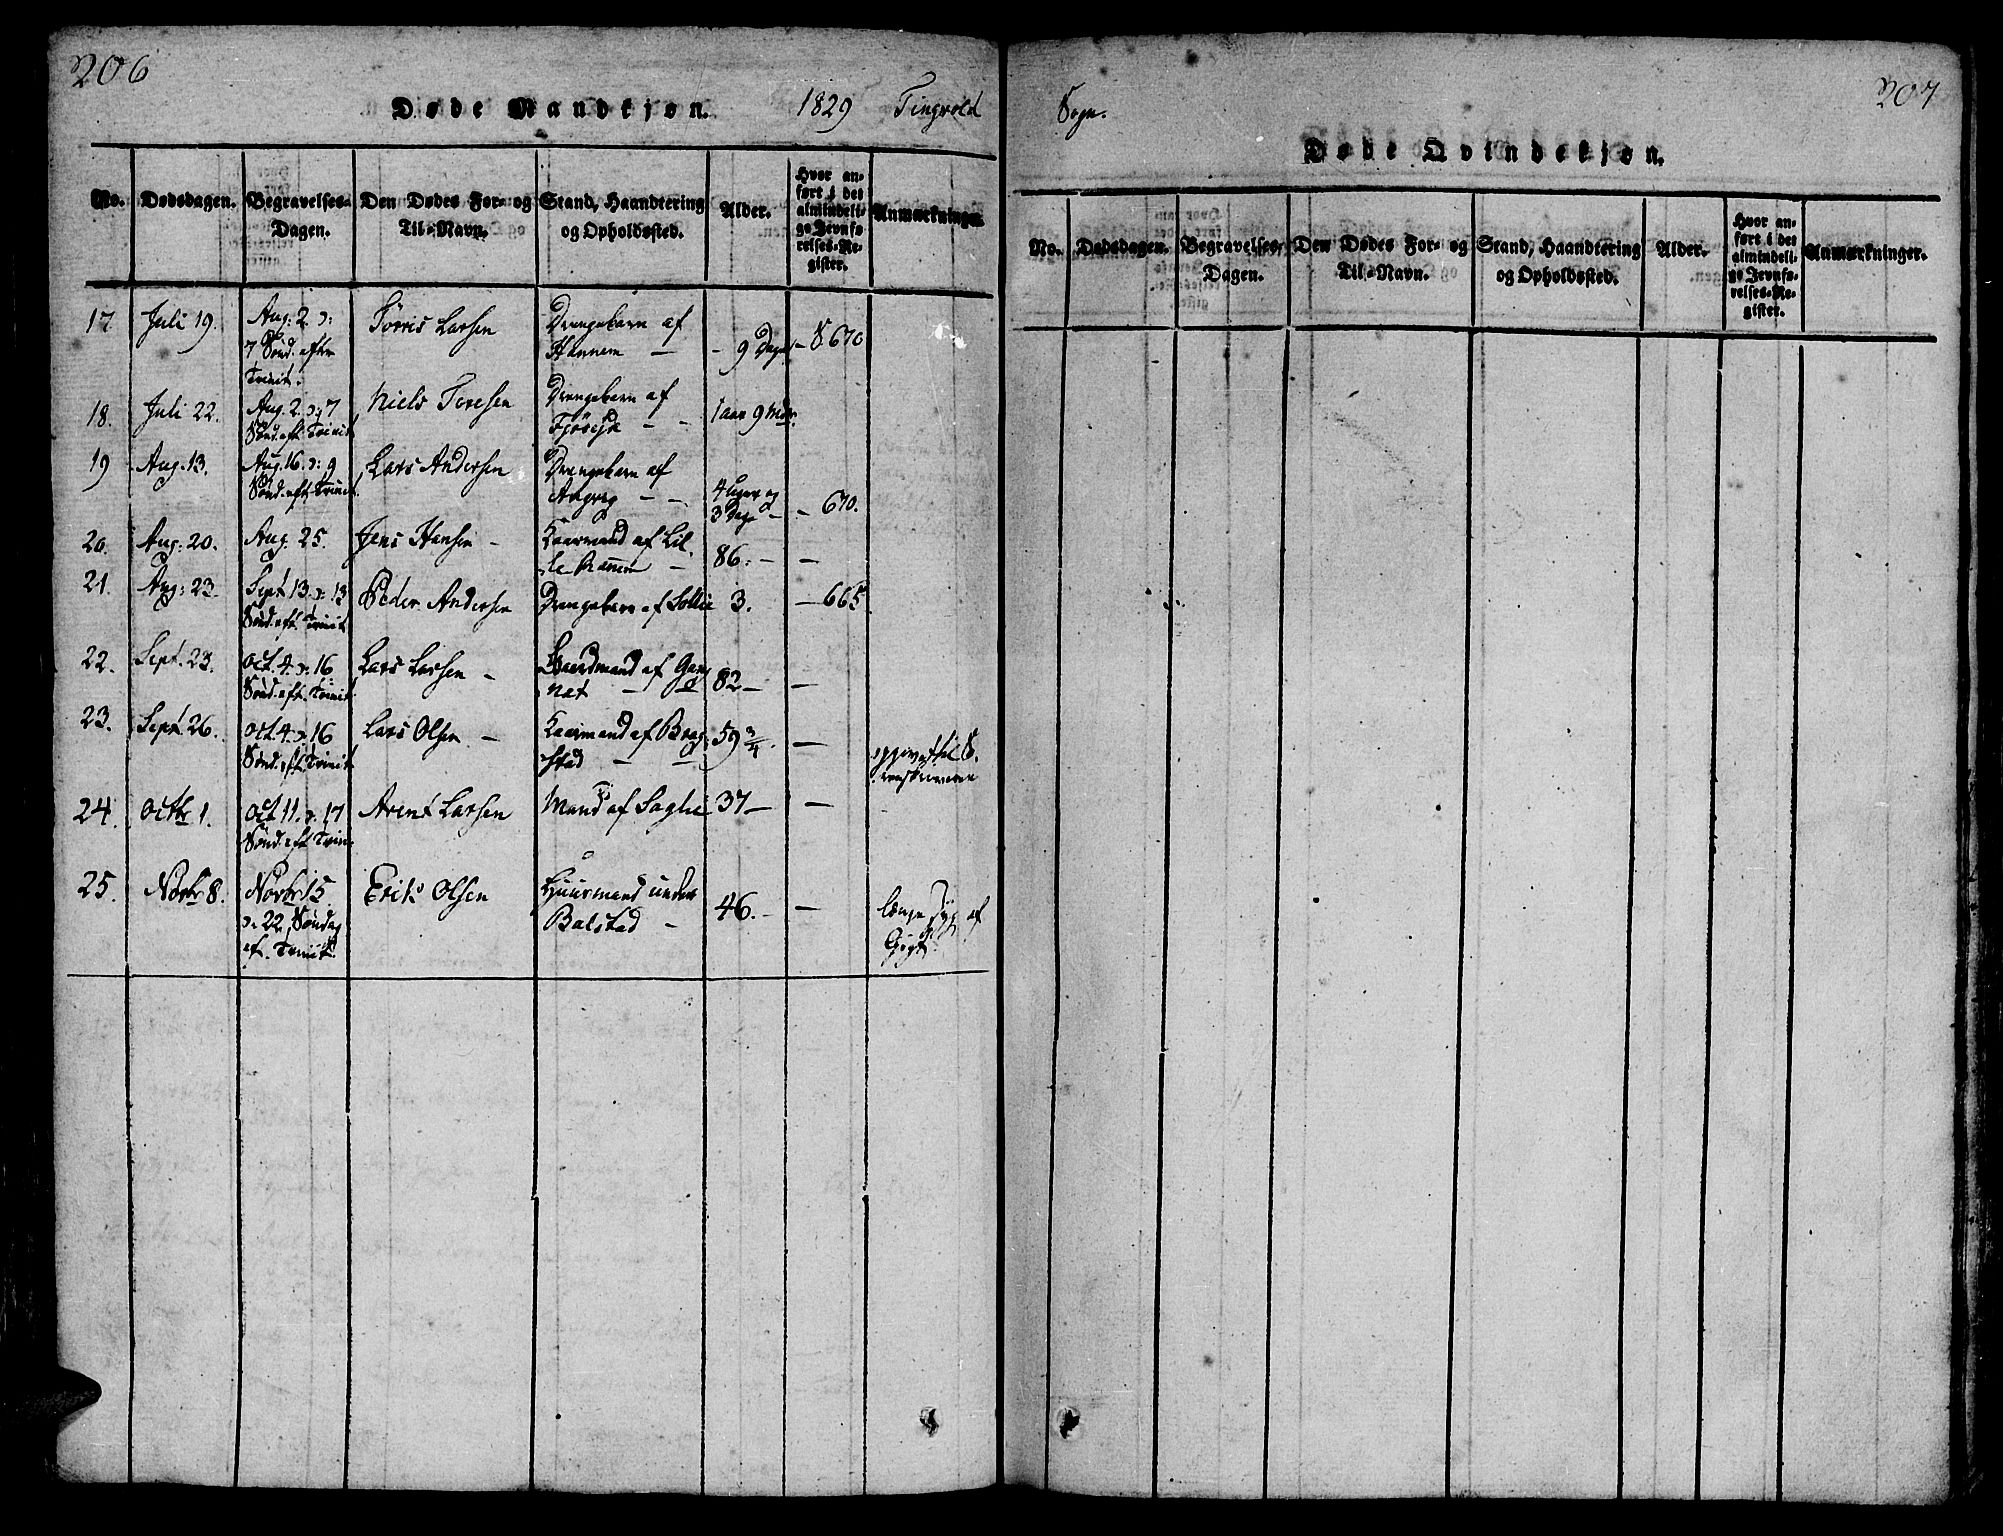 206
Døde Mandkjøn. 1829 Tingvold
No. Dødsdagen. Begravelses-Dagen. Den Dødes For- og Til-Navn. Stand, Haandtering og Opholdssted. Alder. Hvor anført i det almindelige Jevnførelses-Register. Anmærkninger.
17 Juli 19. Aug: 2. ɔ: Törris Larsen Drengebarn af
7 Sönd. efter Hannem — - 9 Dage — S 670
Trinit.
18. Juli 22. Aug. 2. ɔ: 7 Niels Toresen Drengebarn af 1 aar 9 Mdr.
Sönd. eft. Trinit
19 Aug. 13. Aug. 16. ɔ: 9 Lars Andersen Drengebarn af
Sönd. eft. Trinit. Angvig — — 4 Uger og
3 Dage — - 670.
20. Aug: 20. Aug. 25. Jens Hansen - Kaarmand af Lil-
86. - —
21. Aug: 23. Sept 13 ɔ: 13 Peder Andersen Drengebarn af Sollie 3. — 665
Sönd. eft. Trinit
22. Sept. 23. Oct. 4. ɔ. 16 Lars Larsen - Gaardmand af Gag-
Sönd. eft. Trinit nat — 82 — —
23. Sept 26. Oct. 4. ɔ. 16 Lars Olsen - Kaarmand af Boag-
Sönd. eft. Trinit stad — — 59 3/4. —
24. Octbr 1. Oct 11. ɔ. 17 Arent Larsen Mand af Saghie 37 — —
Sönd. eft Trin.
25. Novbr 8. Novbr 15. Erik Olsen Huusmand under
ɔ. 22 Söndag Balstad — 46. - — længe syg af
eft. Trinit. Gigt
Sogn. 207
Døde Qvindekjøn.
No. Dødsdagen. Begravelses-Dagen. Den Dødes For- og Til-Navn. Stand, Haandtering og Opholdssted. Alder. Hvor anført i det almindelige Jevnførelses-Register. Anmærkninger.